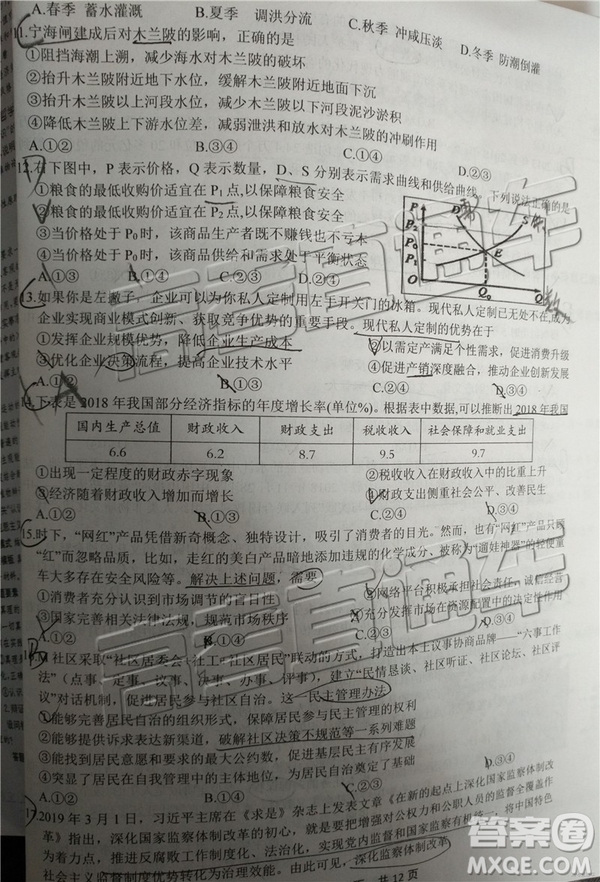 A.春季 蓄水灌溉 B.夏季 调洪分流 C.秋季 冲咸压淡 D.冬季 防潮倒灌
11.宁海闸建成后对木兰陂的影响，正确的是
①阻挡海潮上溯，减少海水对木兰陂的破坏
②抬升木兰陂附近地下水位，缓解木兰陂附近地面下沉
③抬升木兰陂以上河段水位，减少木兰陂以下河段泥沙淤积
④降低木兰陂上下游水位差，减弱泄洪和放水对木兰陂的冲刷作用
A.①② B.①③ C.①④ D.②③
12.在下图中，P 表示价格，Q 表示数量，D、S 分别表示需求曲线和供给曲线。下列说法正确的是
①粮食的最低收购价适宜在 P₁ 点,以保障粮食安全
②粮食的最低收购价适宜在 P₂ 点,以保障粮食安全
③当价格处于 P₀ 时，该商品生产者既不赚钱也不亏本
④当价格处于 P₀ 时，该商品供给和需求处于平衡状态
A.①③ B.①④ C.②③ D.②④
P D S
P₂
P₀ E
P₁
O Q₀ Q
13.如果你是左撇子，企业可以为你私人定制用左手开关门的冰箱。现代私人定制已无处不在,成为
企业实现商业模式创新、获取竞争优势的重要手段。现代私人定制的优势在于
①发挥企业规模优势，降低企业生产成本 ②以需定产满足个性需求，促进消费升级
③优化企业决策流程，提高企业技术水平 ④促进产销深度融合，推动企业创新发展
A.①② B.①③ C.②④ D.③④
14.下表是 2018 年我国部分经济指标的年度增长率(单位%)。根据表中数据,可以推断出 2018 年我国
国内生产总值 财政收入 财政支出 税收收入 社会保障和就业支出
6.6 6.2 8.7 9.5 9.7
①出现一定程度的财政赤字现象 ②税收收入在财政收入中的比重上升
③经济随着财政收入增加而增长 ④财政支出侧重社会公平、改善民生
A.①② B.①③ C.②④ D.③④
15.时下，“网红”产品凭借新奇概念、独特设计，吸引了消费者的目光。然而，也有“网红”产品只顾
“红”而忽略品质，比如，走红的美白产品暗地添加违规的化学成分、被称为“遛娃神器”的轻便童
车大多存在安全风险等。解决上述问题，需要
①消费者充分认识到市场调节的盲目性 ②网络平台积极承担社会责任，诚信经营
③国家完善相关法律法规，规范市场秩序 ④充分发挥市场在资源配置中的决定性作用
A.①② B.①④ C.②③ D.③④
社区采取“社区居委会+社工+社区居民”联动的方式，打造出本土议事协商品牌——“六事工作
法”（点事、定事、议事、决事、办事、评事），建立“民情恳谈、社区听证、社区论坛、社区评
议”对话机制，促进居民参与社区自治。这一民主管理办法
①能够完善自治的组织形式，保障居民参与民主管理的权利
②能够提供诉求表达新渠道，破解社区决策不规范等一系列难题
③能够寻求居民参与的最大公约数，促进居民自治更好发展
④突显了居民在自我管理中的主体地位，为居民自治创造条件
A.①② B.①④ C.②③ D.③④
17.2019 年 3 月 1 日，习近平主席在《求是》杂志上发表文章《在新的起点上深化国家监察体制改
革》指出，深化国家监察体制改革的初心，就是要把增强对公权力和公职人员的监督全覆盖作
为着力点，推进反腐败工作法治化、法治化，实现党内监督和国家机关监督有机统一，将中国特色
社会主义监督制度优势转化为治理效能。由此可见，深化监察体制改革
共 12 页
高考直通车
答案圈
MXQE.COM